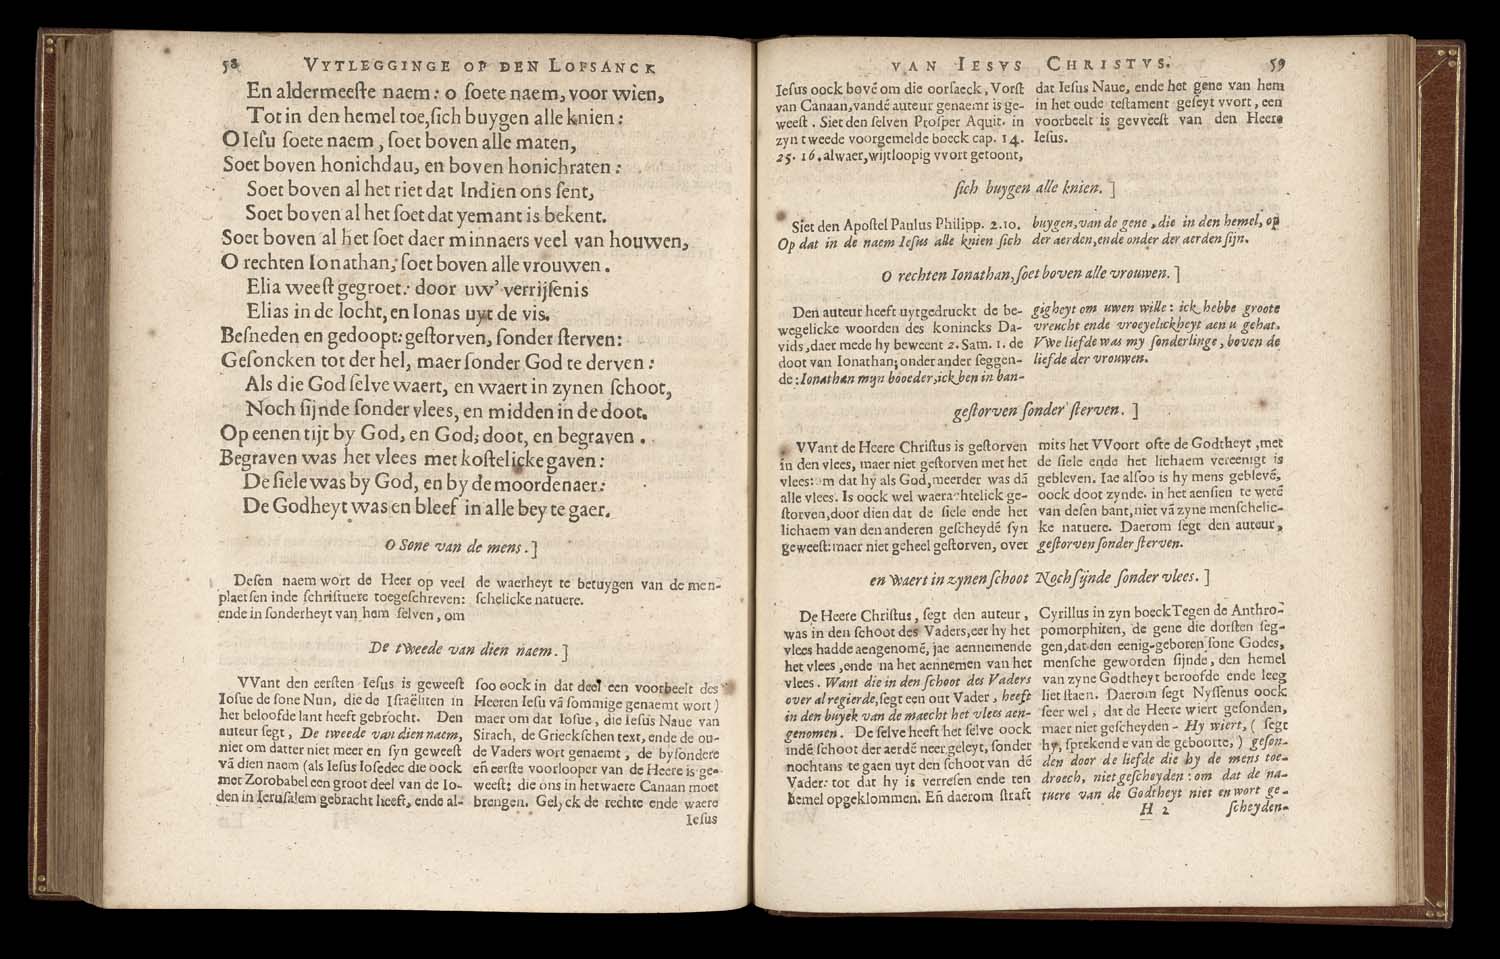 58 VYTLEGGINGE OP DEN LOFSANCK
En aldermeeſte naem: o ſoete naem, voor wien,
Tot in den hemel toe, ſich buygen alle knien:
O Ieſu ſoete naem, ſoet boven alle maten,
Soet boven honichdau, en boven honichraten:
Soet boven al het riet dat Indien ons ſent,
Soet boven al het ſoet dat yemant is bekent.
Soet boven al het ſoet daer minnaers veel van houwen,
O rechten Ionathan, ſoet boven alle vrouwen.
Elia weeſt gegroet: door uw' verrijſenis
Elias in de locht, en Ionas uyt de vis.
Beſneden en gedoopt: geſtorven, ſonder ſterven:
Geſoncken tot der hel, maer ſonder God te derven:
Als die God ſelve waert, en waert in zynen ſchoot,
Noch ſijnde ſonder vlees, en midden in de doot.
Op eenen tijt by God, en God, doot, en begraven.
Begraven was het vlees met koſtelicke gaven:
De ſiele was by God, en by de moordenaer:
De Godheyt was en bleef in alle bey te gaer.
O Sone van de mens.]
Deſen naem wort de Heer op veel
plaetſen inde ſchriftuere toegeſchreven:
ende in ſonderheyt van hem ſelven, om
de waerheyt te betuygen van de men-
ſchelicke natuere.
De tweede van dien naem.]
VVant den eerſten Ieſus is geweeſt
Ioſue de ſone Nun, die de Iſraëliten in
het beloofde lant heeft gebrocht. Den
auteur ſegt, De tweede van dien naem,
niet om datter niet meer en ſyn geweeſt
vā dien naem (als Ieſus Ioſedec die oock
met Zorobabel een groot deel van de Io-
den in Ieruſalem gebracht heeft, ende al-
ſoo oock in dat deel een voorbeelt des
Heeren Ieſu vā ſommige genaemt wort)
maer om dat Ioſue, die Ieſus Naue van
Sirach, de Grieckſchen text, ende de ou-
de Vaders wort genaemt, de byſondere
en̄ eerſte voorlooper van de Heere is ge-
weeſt: die ons in het waere Canaan moet
brengen. Gelyck de rechte ende waere
Ieſus
VAN IESVS CHRISTVS. 59
Ieſus oock bovē om die oorſaeck, Vorſt
van Canaan, vandē auteur genaemt is ge-
weeſt. Siet den ſelven Proſper Aquit. in
zyn tweede voorgemelde boeck cap. 14.
25. 16. alwaer, wijtloopig vvort getoont,
dat Ieſus Naue, ende het gene van hem
in het oude teſtament geſeyt vvort, een
voorbeelt is gevveeſt van den Heere
Ieſus.
ſich buygen alle knien.]
Siet den Apoſtel Paulus Philipp. 2.10.
Op dat in de naem Ieſus alle knien ſich
buygen, van de gene, die in den hemel, op
der aerden, ende onder der aerden ſijn.
O rechten Ionathan, ſoet boven alle vrouwen.]
Den auteur heeft uytgedruckt de be-
wegelicke woorden des konincks Da-
vids, daer mede hy beweent 2. Sam. 1. de
doot van Ionathan; onder ander ſeggen-
de: Ionathan mijn booeder, ick ben in ban-
gigheyt om uwen wille: ick hebbe groote
vreucht ende vroeyelickheyt aen u gehat.
Vwe liefde was my ſonderlinge, boven de
liefde der vrouwen.
geſtorven ſonder ſterven.]
VVant de Heere Chriſtus is geſtorven
in den vlees, maer niet geſtorven met het
vlees: om dat hy als God, meerder was dā
alle vlees. Is oock wel waerachtelick ge-
ſtorven, door dien dat de ſiele ende het
lichaem van den anderen geſcheydē ſyn
geweeſt: maer niet geheel geſtorven, over
mits het VVoort ofte de Godtheyt, met
de ſiele ende het lichaem vereenigt is
gebleven. Iae alſoo is hy mens geblevē,
oock doot zynde. in het aenſien te wetē
van deſen bant, niet vā zyne menſchelic-
ke natuere. Daerom ſegt den auteur,
geſtorven ſonder ſterven.
en waert in zynen ſchoot Noch ſijnde ſonder vlees.]
De Heere Chriſtus, ſegt den auteur,
was in den ſchoot des Vaders, eer hy het
vlees hadde aengenomē, jae aennemende
het vlees, ende na het aennemen van het
vlees. Want die in den ſchoot des Vaders
over al regierde, ſegt een out Vader, heeft
in den buyck van de maecht het vlees aen-
genomen. De ſelve heeft het ſelve oock
indē ſchoot der aerdē neer geleyt, ſonder
nochtans te gaen uyt den ſchoot van dē
Vader: tot dat hy is verreſen ende ten
hemel opgeklommen. En̄ daerom ſtraft
Cyrillus in zyn boeck Tegen de Anthro-
pomorphiten, de gene die dorſten ſeg-
gen, dat den eenig-geboren ſone Godes,
menſche geworden ſijnde, den hemel
van zyne Godtheyt beroofde ende leeg
liet ſtaen. Daerom ſegt Nyſſenus oock
ſeer wel, dat de Heere wiert geſonden,
maer niet geſcheyden - Hy wiert, (ſegt
hy, ſprekende van de geboorte,) geſon-
den door de liefde die hy de mens toe-
droech, niet geſcheyden: om dat de na-
tuere van de Godtheyt niet en wort ge-
H 2 ſcheyden-